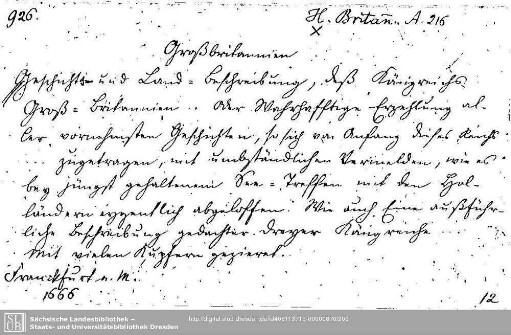 926. H. Britan̅. A. 216
Großbritannien
Geschicht- und Land-Beschreibung, deß Königreichs
Groß-Britannien. Oder Wahrhafftige Erzehlung al-
ler vornehmsten Geschichten, so sich von Anfang dieses Reichs
zugetragen, mit umbständlichen Vermelden, wie es
bey jüngst gehaltenem See-Treffen mit den Hol-
ländern eygentlich abgeloffen. Wie auch Eine außführ-
liche Beschreibung gedachter dreyer Königreiche
mit vielen Kupfern gezieret.
Franckfurt a. M.
1666
12
Sächsische Landesbibliothek –
Staats- und Universitätsbibliothek Dresden